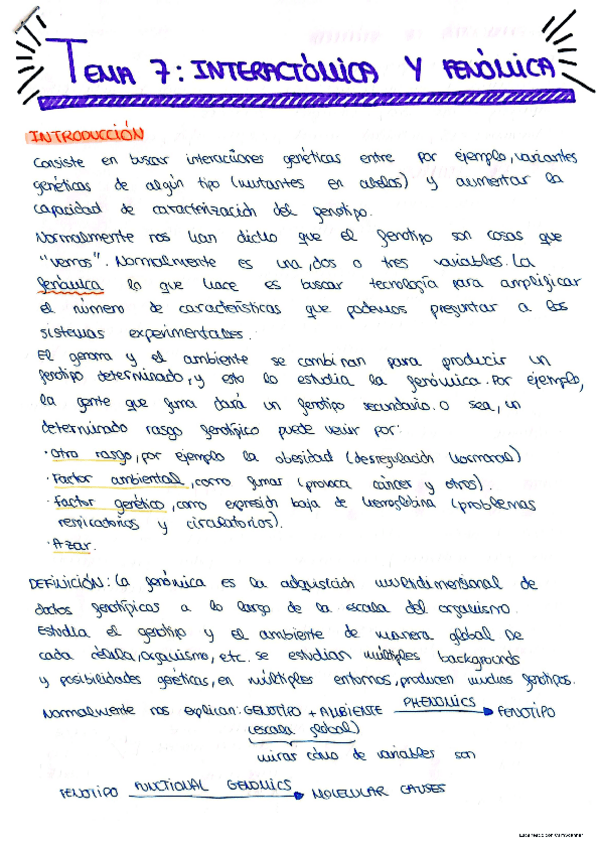 TEMA 7: INTERACTÓMICA Y FENÓMICA
INTRODUCCIÓN
Consiste en buscar interacciones genéticas entre por ejemplo, variantes
genéticas de algún tipo (mutantes en alelos) y aumentar la
capacidad de caracterización del fenotipo.
Normalmente nos han dicho que el fenotipo son cosas que
"vemos". Normalmente es una, dos o tres variables. La
fenómica lo que hace es buscar tecnología para amplificar
el número de características que podemos preguntar a los
sistemas experimentales.
El genoma y el ambiente se combinan para producir un
fenotipo determinado, y esto lo estudia la fenómica. Por ejemplo,
la gente que fuma dará un fenotipo secundario. O sea, un
determinado rasgo fenotípico puede venir por:
· Otro rasgo, por ejemplo la obesidad (desregulación hormonal)
· Factor ambiental, como fumar (provoca cáncer y otros).
· Factor genético, como expresión baja de hemoglobina (problemas
respiratorios y circulatorios).
· Azar.
DEFINICIÓN: La fenómica es la adquisición multidimensional de
datos fenotípicos a lo largo de la escala del organismo.
Estudia el genotipo y el ambiente de manera global. De
cada célula, organismo, etc. se estudian múltiples backgrounds
y posibilidades genéticas, en múltiples entornos, producen muchos fenotipos.
Normalmente nos explican: GENOTIPO + AMBIENTE PHENOMICS FENOTIPO
(escala global)
mirar cómo de variables son
FENOTIPO FUNCTIONAL GENOMICS MOLECULAR CAUSES